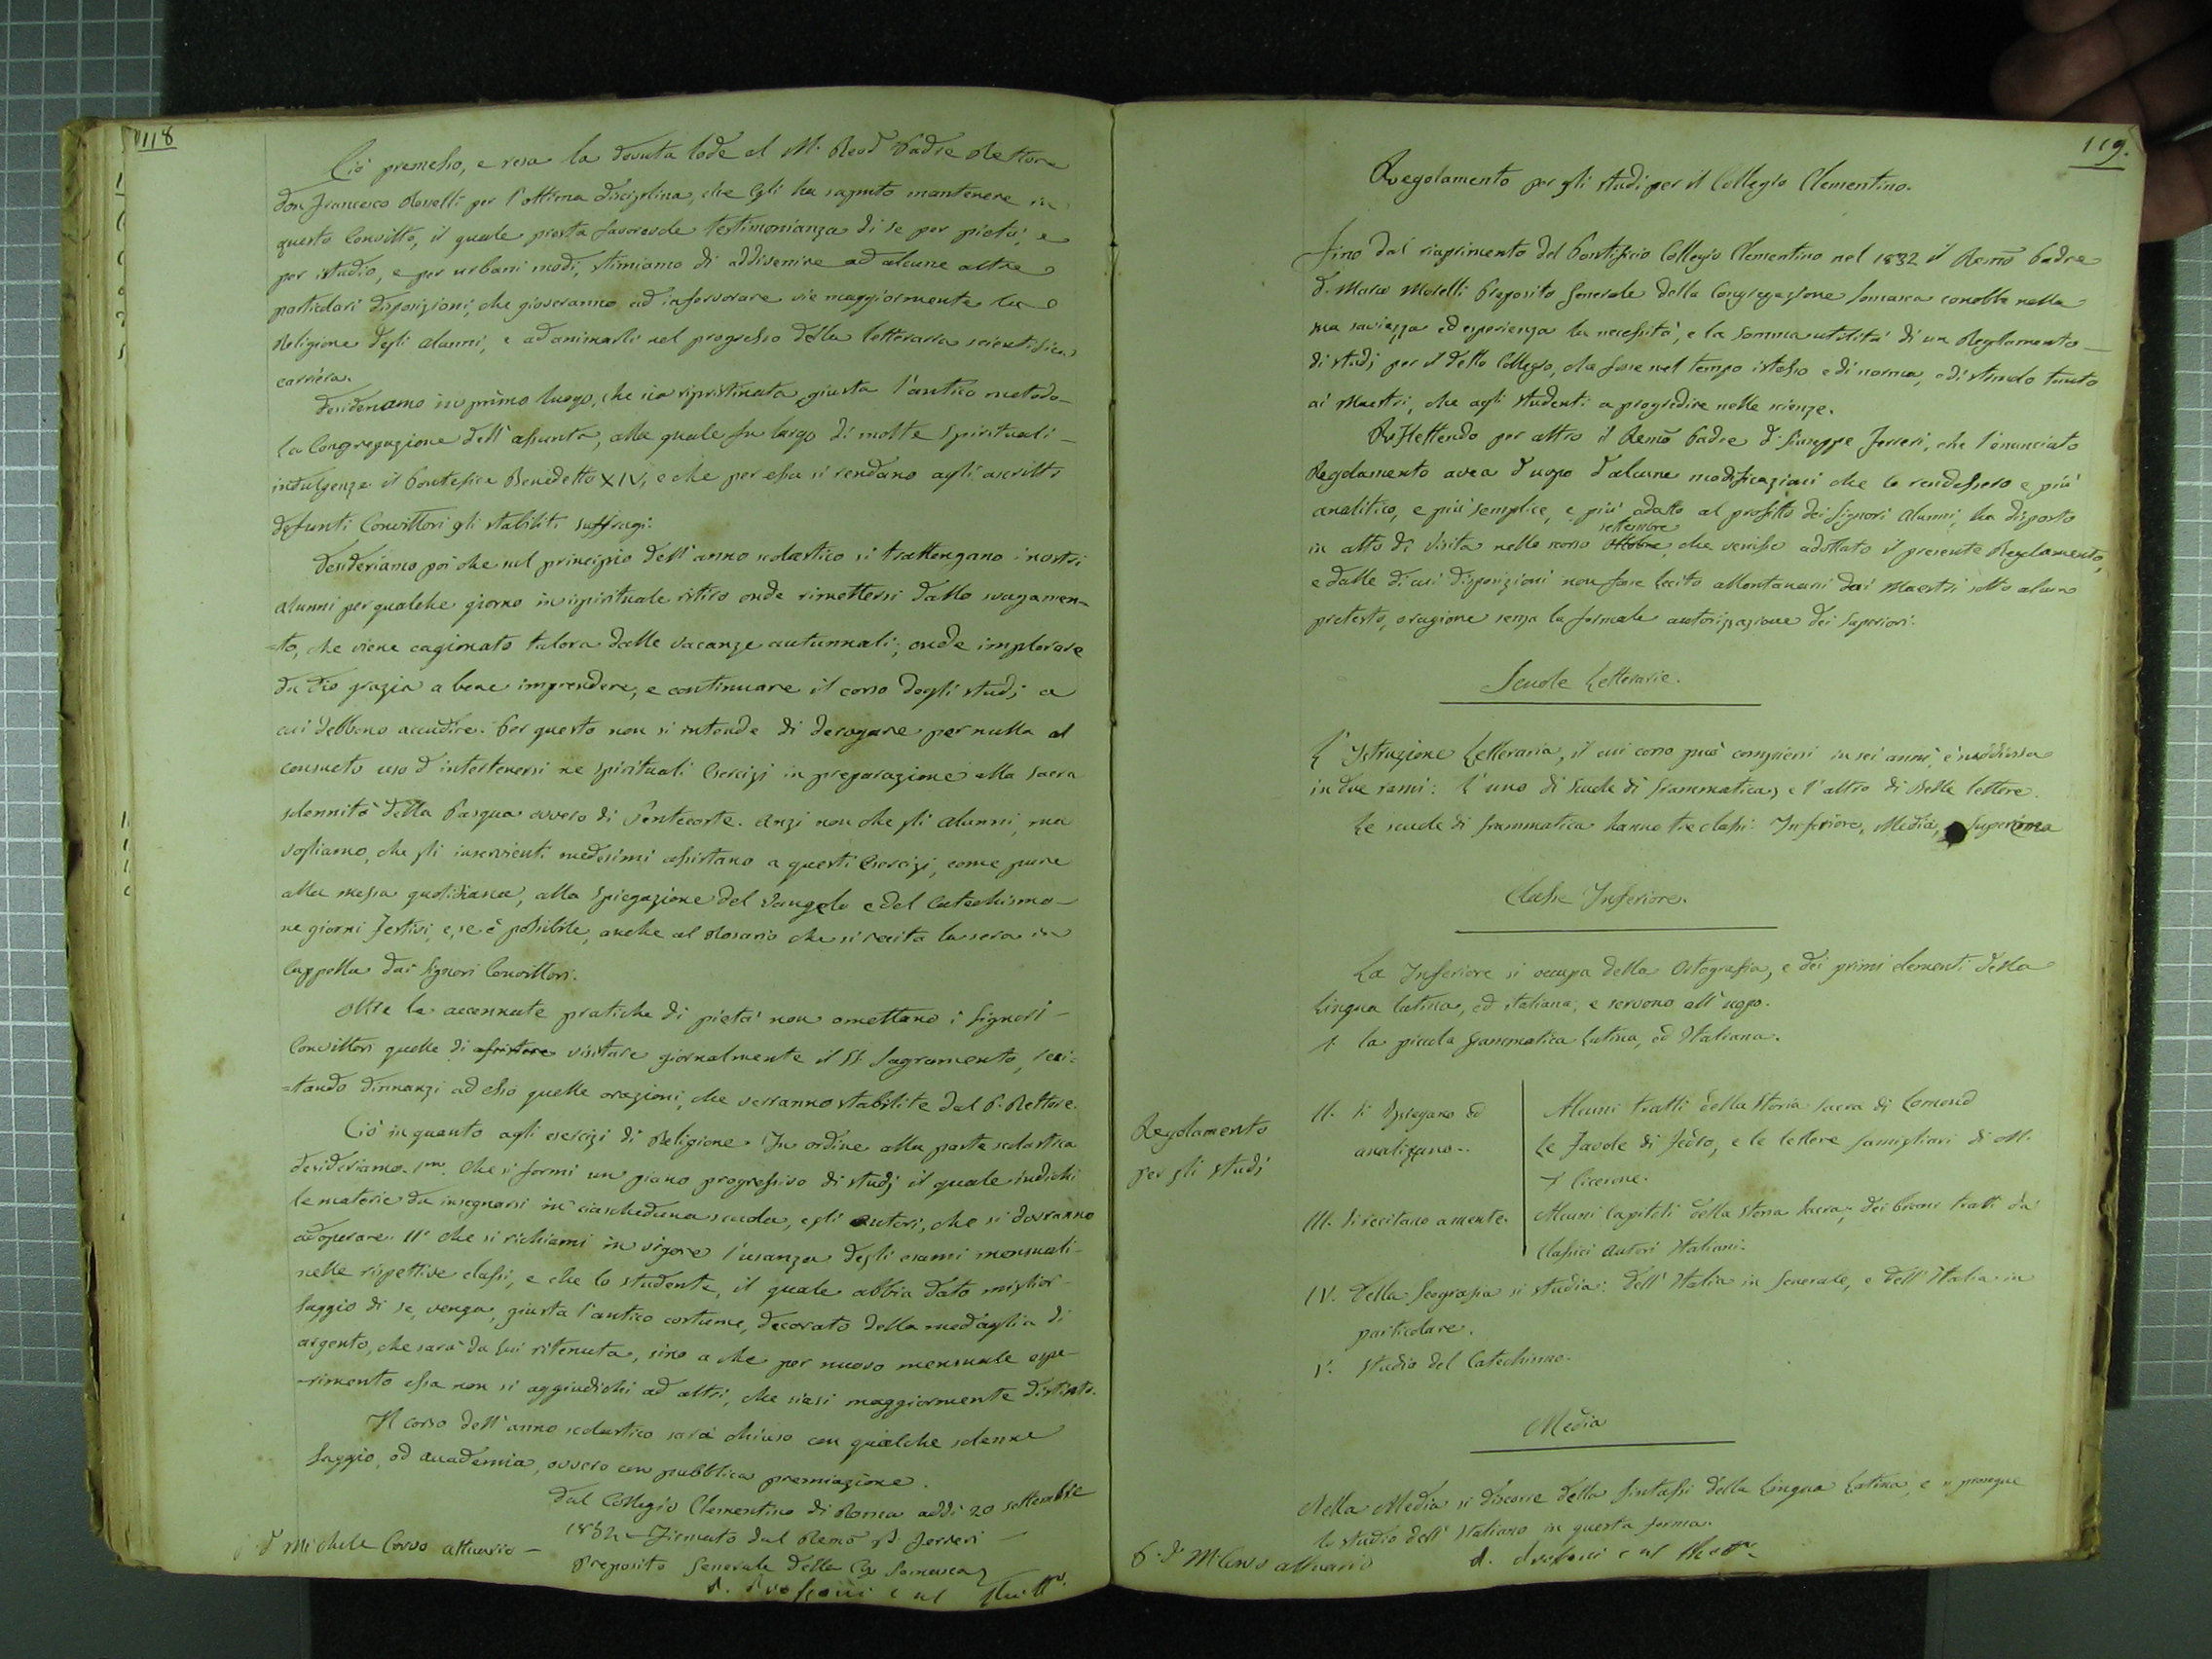 118
Ciò premesso, e resa la dovuta lode al M. Rev.d Padre Rettore
Don Francesco Rosselli per l'ottima disciplina, che Egli ha saputo mantenere in
questo Convitto, il quale presta favorevole testimonianza di se per pietà, e
per istudio, e per urbani modi, stimiamo di addivenire ad alcune altre
particolari disposizioni, che gioveranno ad infervorare vie maggiormente la
Religione degli alunni, e ad animarli nel progresso della letteraria scientifica
carriera.
Desideriamo in primo luogo, che sia ripristinata giusta l'antico metodo
la Congregazione dell'Assunta, alla quale fu largo di molte spirituali
indulgenze il Pontefice Benedetto XIV, e che per essa si rendano agli ascritti
defunti Convittori gli stabiliti suffragi.
Desideriamo poi che nel principio dell'anno scolastico si trattengano i nostri
alunni per qualche giorno in ispirituale ritiro onde rimettersi dallo svagamen=
=to, che viene cagionato talora dalle vacanze autunnali; onde implorare
da Dio grazia a bene imprendere, e continuare il corso degli studj a
cui debbono accudire. Per questo non si intende di derogare per nulla al
consueto uso d'intertenersi ne spirituali Esercizi in preparazione alla sacra
solennità della Pasqua ovvero di Pentecoste. Anzi non che gli alunni, ma
vogliamo, che gli inservienti medesimi assistano a questi Esercizi, come pure
alla messa quotidiana, alla spiegazione del Vangelo e del Catechismo
ne giorni festivi, e, se è possibile, anche al Rosario che si recita la sera in
Cappella dai Signori Convittori.
Oltre le accennate pratiche di pietà non omettano i Signori
Convittori quelle di assistere visitare giornalmente il SS. Sagramento, reci=
=tando dinnanzi ad esso quelle orazioni, che verranno stabilite dal P. Rettore.
Ciò in quanto agli esercizi di Religione. In ordine alla parte scolastica
desideriamo 1.mo Che si formi un piano progressivo di studj il quale indichi
le materie da insegnarsi in ciascheduna scuola, e gli autori, che si dovranno
adoperare. II° che si richiami in vigore l'usanza degli esami mensuali
nelle rispettive classi, e che lo studente, il quale abbia dato miglior
saggio di se, venga, giusta l'antico costume, decorato della medaglia di
argento, che sarà da lui ritenuta, sino a che per nuovo mensuale espe=
=rimento essa non si aggiudichi ad altri, che siasi maggiormente distinto.
Il corso dell'anno scolastico sarà chiuso con qualche solenne
saggio, od accademia, ovvero con pubblica premiazione.
Dal Collegio Clementino di Roma addi 20 settembre
1842 - Firmato dal Remo P. Ferreri
Preposito Generale della Co Somasca
D. Michele Corvo attuario -
119.
Regolamento per gli studi per il Collegio Clementino.
Fino dal riaprimento del Pontificio Collegio Clementino nel 1832 il Remo Padre
D. Marco Morelli Preposito Generale della Congregazione Somasca conobbe nella
sua saviezza ed esperienza la necessità, e la somma utilità di un Regolamento
di studj per il detto Collegio, che fosse nel tempo istesso e di norma, e di stimolo tanto
ai Maestri, che agli studenti a progredire nelle scienze.
Riflettendo per altro il Remo Padre D. Giuseppe Ferreri, che l'enunciato
Regolamento avea d'uopo d'alcune modificazioni che lo rendessero e più
analitico, e più semplice, e più adatto al profitto dei Signori Alunni, ha disposto
settembre
in atto di visita nello scorso ottobre che venisse adottato il presente Regolamento,
e dalle di cui disposizioni non fosse lecito allontanarsi dai Maestri sotto alcun
pretesto, o ragione senza la formale autorizzazione dei Superiori.
Scuole Letterarie.
L'Istruzione Letteraria, il cui corso può compiersi in sei anni, è suddivisa
in due rami: L'uno di Scuole di Grammatica, e l'altro di Belle Lettere.
Le scuole di Grammatica hanno tre classi: Inferiore, Media,
Classe Inferiore.
La Inferiore si occupa della Ortografia, e dei primi elementi della
Lingua latina, ed italiana, e servono all'uopo.
I. La piccola Grammatica Latina, ed Italiana.
Regolamento
per gli studj
II. Si spiegano ed
analizzano..
Alcuni tratti della Storia Sacra di Lomond
Le Favole di Fedro, e le lettere famigliari di M.
T. Cicerone.
III. Si recitano a mente.
Alcuni Capitoli della Storia Sacra; dei brani tratti da
Classici Autori Italiani.
IV. Della Geografia si studia: dell'Italia in Generale, e dell'Italia in
particolare.
V. Studio del Catechismo.
Media
Nella Media si discorre della Sintassi della Lingua Latina, e si prosegue
lo studio dell'Italiano in questa forma.
P. D. M. Corvo attuario